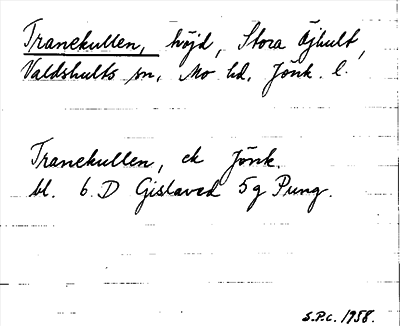 Tranekullen, höjd, Stora Öjhult,
Valdshults sn, Mo hd, Jönk. l.
Tranekullen, ek Jönk.
bl. 6 D Gislaved 5g Pung.
S.P.C. 1958.